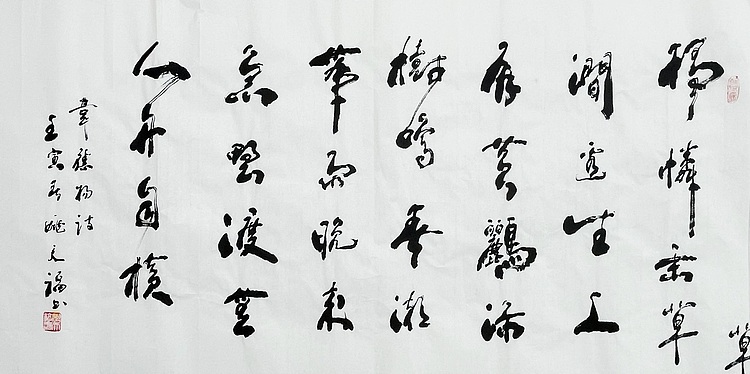 獨憐幽草
澗邊生上
有黄鸝深
樹鳴春潮
帶雨晚来
急野渡無
人舟自横
韋應物詩
壬寅春 福书